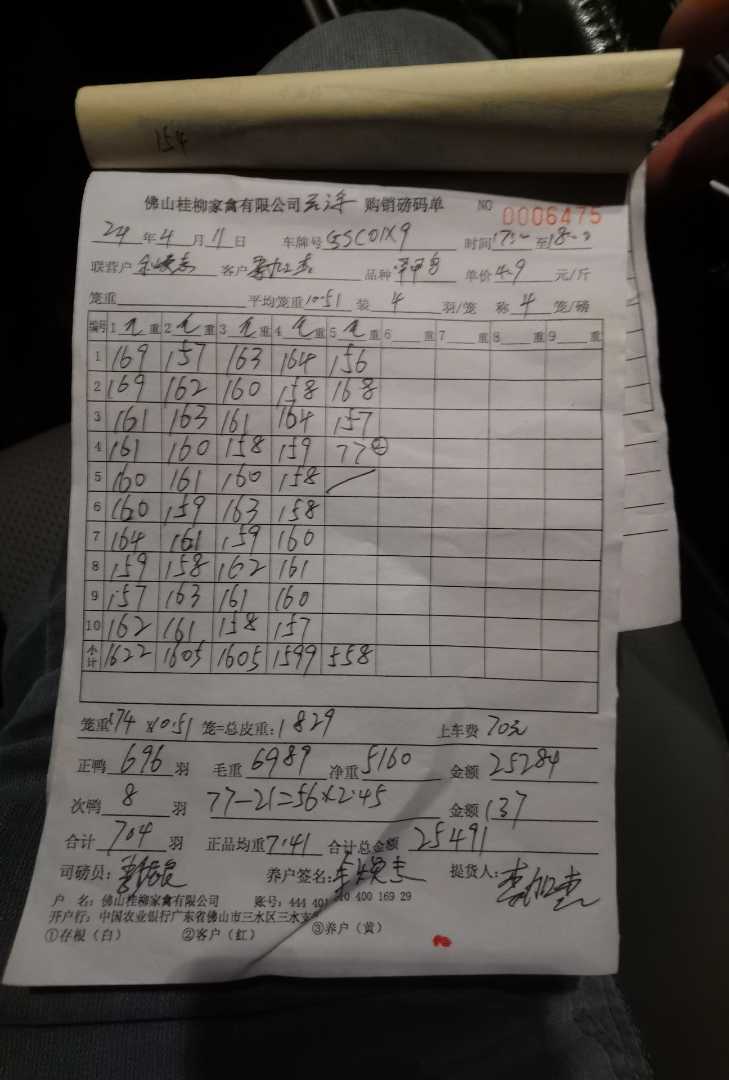 154
佛山桂柳家禽有限公司 购销磅码单 NO 0006475
24 年 4 月 11 日 车牌号 时间 至
联营户 客户 品种 单价 4.9 元/斤
笼重 平均笼重 10.51 装 4 羽/笼 称 4 笼/磅
编号 1 毛 重 2 毛 重 3 毛 重 4 毛 重 5 毛 重 6 重 7 重 8 重 9 重
1 169 157 163 164 156
2 169 162 160 158 168
3 161 163 161 164 157
4 161 160 158 159 77 ②
5 160 161 160 158
6 160 159 163 158
7 164 161 159 160
8 159 158 162 161
9 157 163 161 160
10 162 161 158 157
小计 1622 1605 1605 1599 558
笼重 174 x10.51 笼=总皮重: 1829 上车费 70元
正鸭 696 羽 毛重 6989 净重 5160 金额 25284
次鸭 8 羽 77-21=56×2.45 金额 137
合计 704 羽 正品均重 7.41 合计总金额 25491
司磅员: 养户签名: 提货人:
户 名: 佛山桂柳家禽有限公司 账号: 444 401 10 400 169 29
开户行: 中国农业银行广东省佛山市三水区三水支
①存根（白） ②客户（红） ③养户（黄）